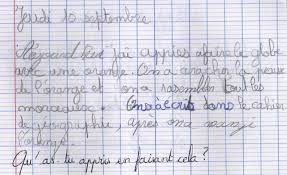 Jeudi 10 septembre
Aujourd'hui j'ai appries a faire le globe
avec une orange. On a arraché la peau
de l'orange et on a rasemblé tout les
morceaux. On a écrit dans le cahier
de géographie, après on a manjé
l'orange.
Qu'as-tu appris en faisant cela ?